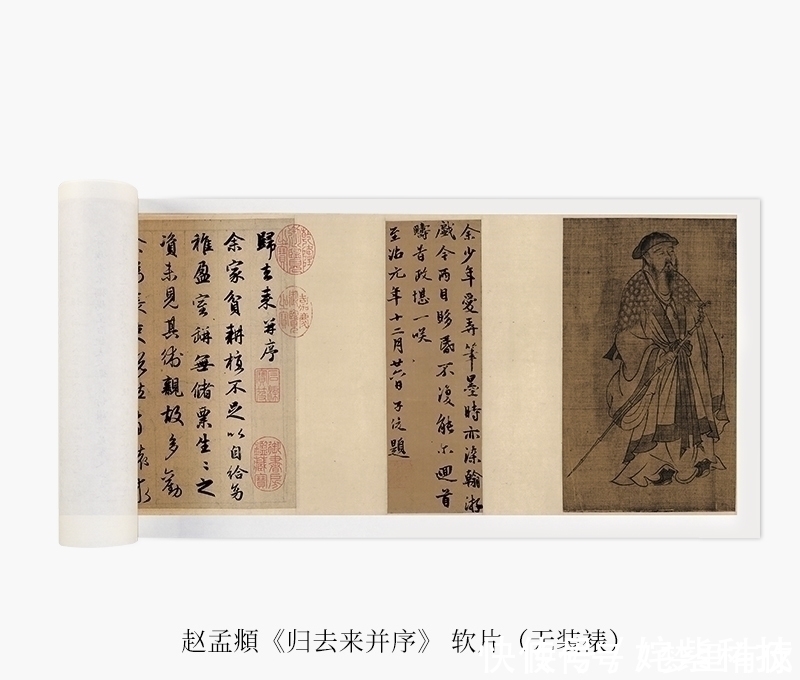 余少年愛弄筆墨時亦染翰游
戲今两目眵昏不復能尔迴首
疇昔政堪一咲
至治元年十二月廿六日子昂題
歸去來并序
余家貧耕植不足以自給幼
稚盈室缾無儲粟生〻之
資未見其術親故多勸
御書房鑑藏寶
赵孟頫《归去来并序》 软片（无装裱）